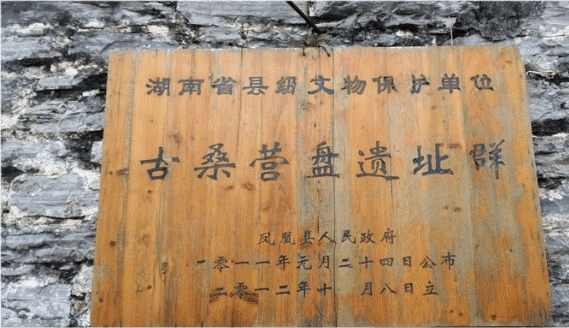 湖南省县级文物保护单位
古桑营盘遗址群
凤凰县人民政府
二零一一年元月二十四日公布
二零一二年十 月八日立